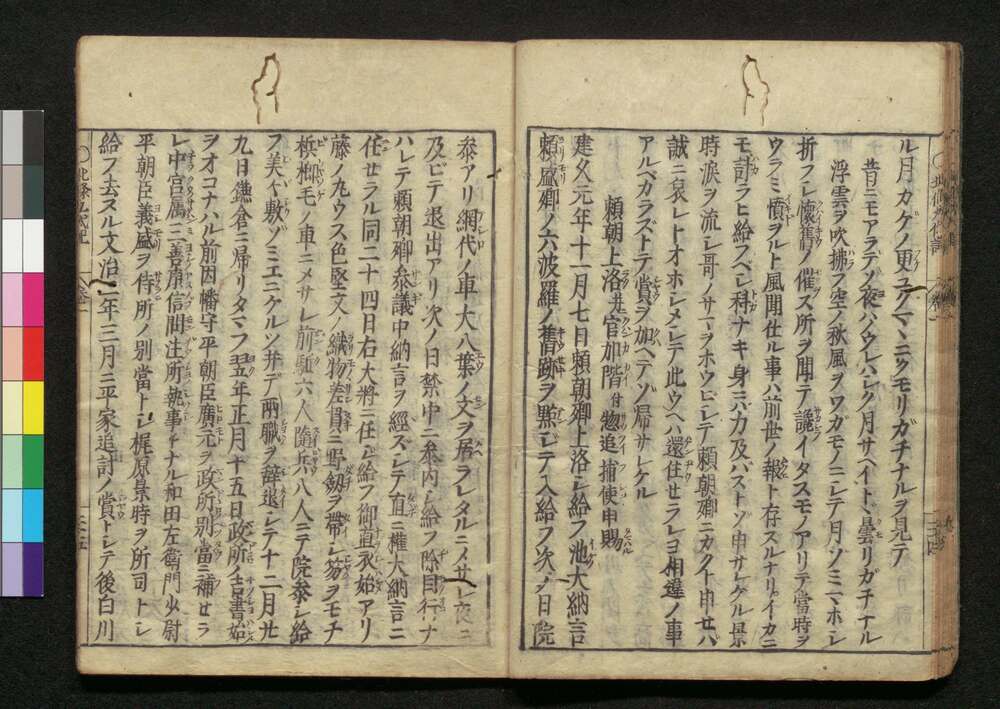 ル月カゲノ更ユクマヽニクモリガチナルヲ見テ
昔ニモアラデゾ夜ハウレハシク月サヘイトヾ曇リガチナル
浮雲ヲ吹拂フ空ノ秋風ヲワガモノニシテ月ゾミマホシ
折フレ懐舊ノ催ス所ヲ聞テ讒イタスモノアリテ當時ヲ
ウラミ憤ヲルト風聞仕ル事ハ前世ノ報ト存スルナリイカニ
モ計ラヒ給スベシ科ナキ身ニハ力及バストゾ申サレケル景
時涙ヲ流シ哥ノサマヲホウビシテ頼朝卿ニカクト申せバ
誠ニ哀レトオホシメシテ此ウヘハ還住せラレヨ相違ノ事
アルベカラズトテ賞ヲ加ヘテゾ帰サレケル
頼朝上洛并官加階付惣追捕使申賜
建久元年十一月七日頼朝卿上洛シ給フ池大納言
頼盛卿ノ六波羅ノ舊跡ヲ點ジテ入給フ次ノ日院
参アリ網代ノ車大八葉ノ文ヲ居ラレタルニメサレ夜ニ
及ビテ退出アリ次ノ日禁中ニ参内シ給フ除目行ナ
ハレテ頼朝卿参議中納言ヲ經ズシテ直ニ權大納言ニ
任せラル同二十四日右大將ニ任シ給フ御直衣始アリ
藤ノ丸ウス色堅文ノ織物差貫ニ野劔ヲ帯シ笏ヲモチ
檳榔毛ノ車ニメサレ前駈六人隨兵八人ニテ院参シ給
フ美々敷ゾミエニケルソ并デ兩職ヲ辞退シテ十二月廿
九日鎌倉ニ帰リタマフ翌年正月十五日政所吉書始
ヲオコナハル前因幡守平朝臣廣元ヲ政所別當ニ補せラ
レ中宮属三善康信問注所執事ナル和田左衛門少尉
平朝臣義盛ヲ侍所ノ別當トシ梶原景時ヲ所司トシ
給フ去スル文治二年三月ニ平家追討ノ賞トシテ後白川